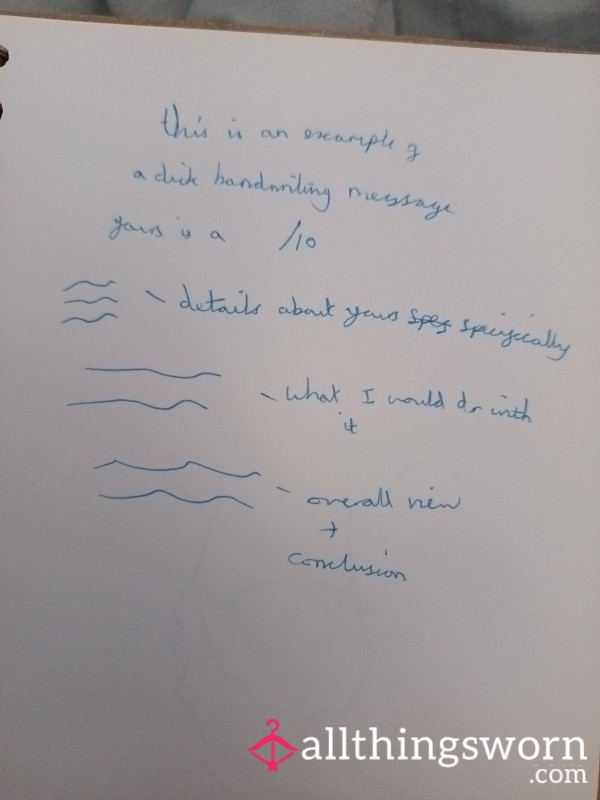 this is an example of
a dick handwriting message
yours is a /10
- details about yours spes specifically
- what I would do with
it
- overall view
+
conclusion
allthingsworn
.com